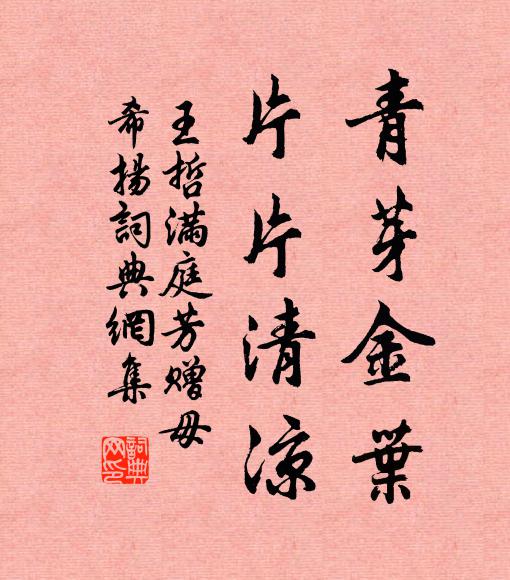 青芽金葉
片片清涼
王哲滿庭芳赠毋
希揚詞典網集
詞典
网印